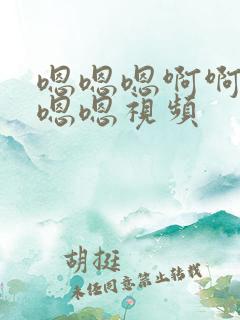 嗯嗯嗯啊啊
嗯嗯视频
胡挺
未经同意禁止转载